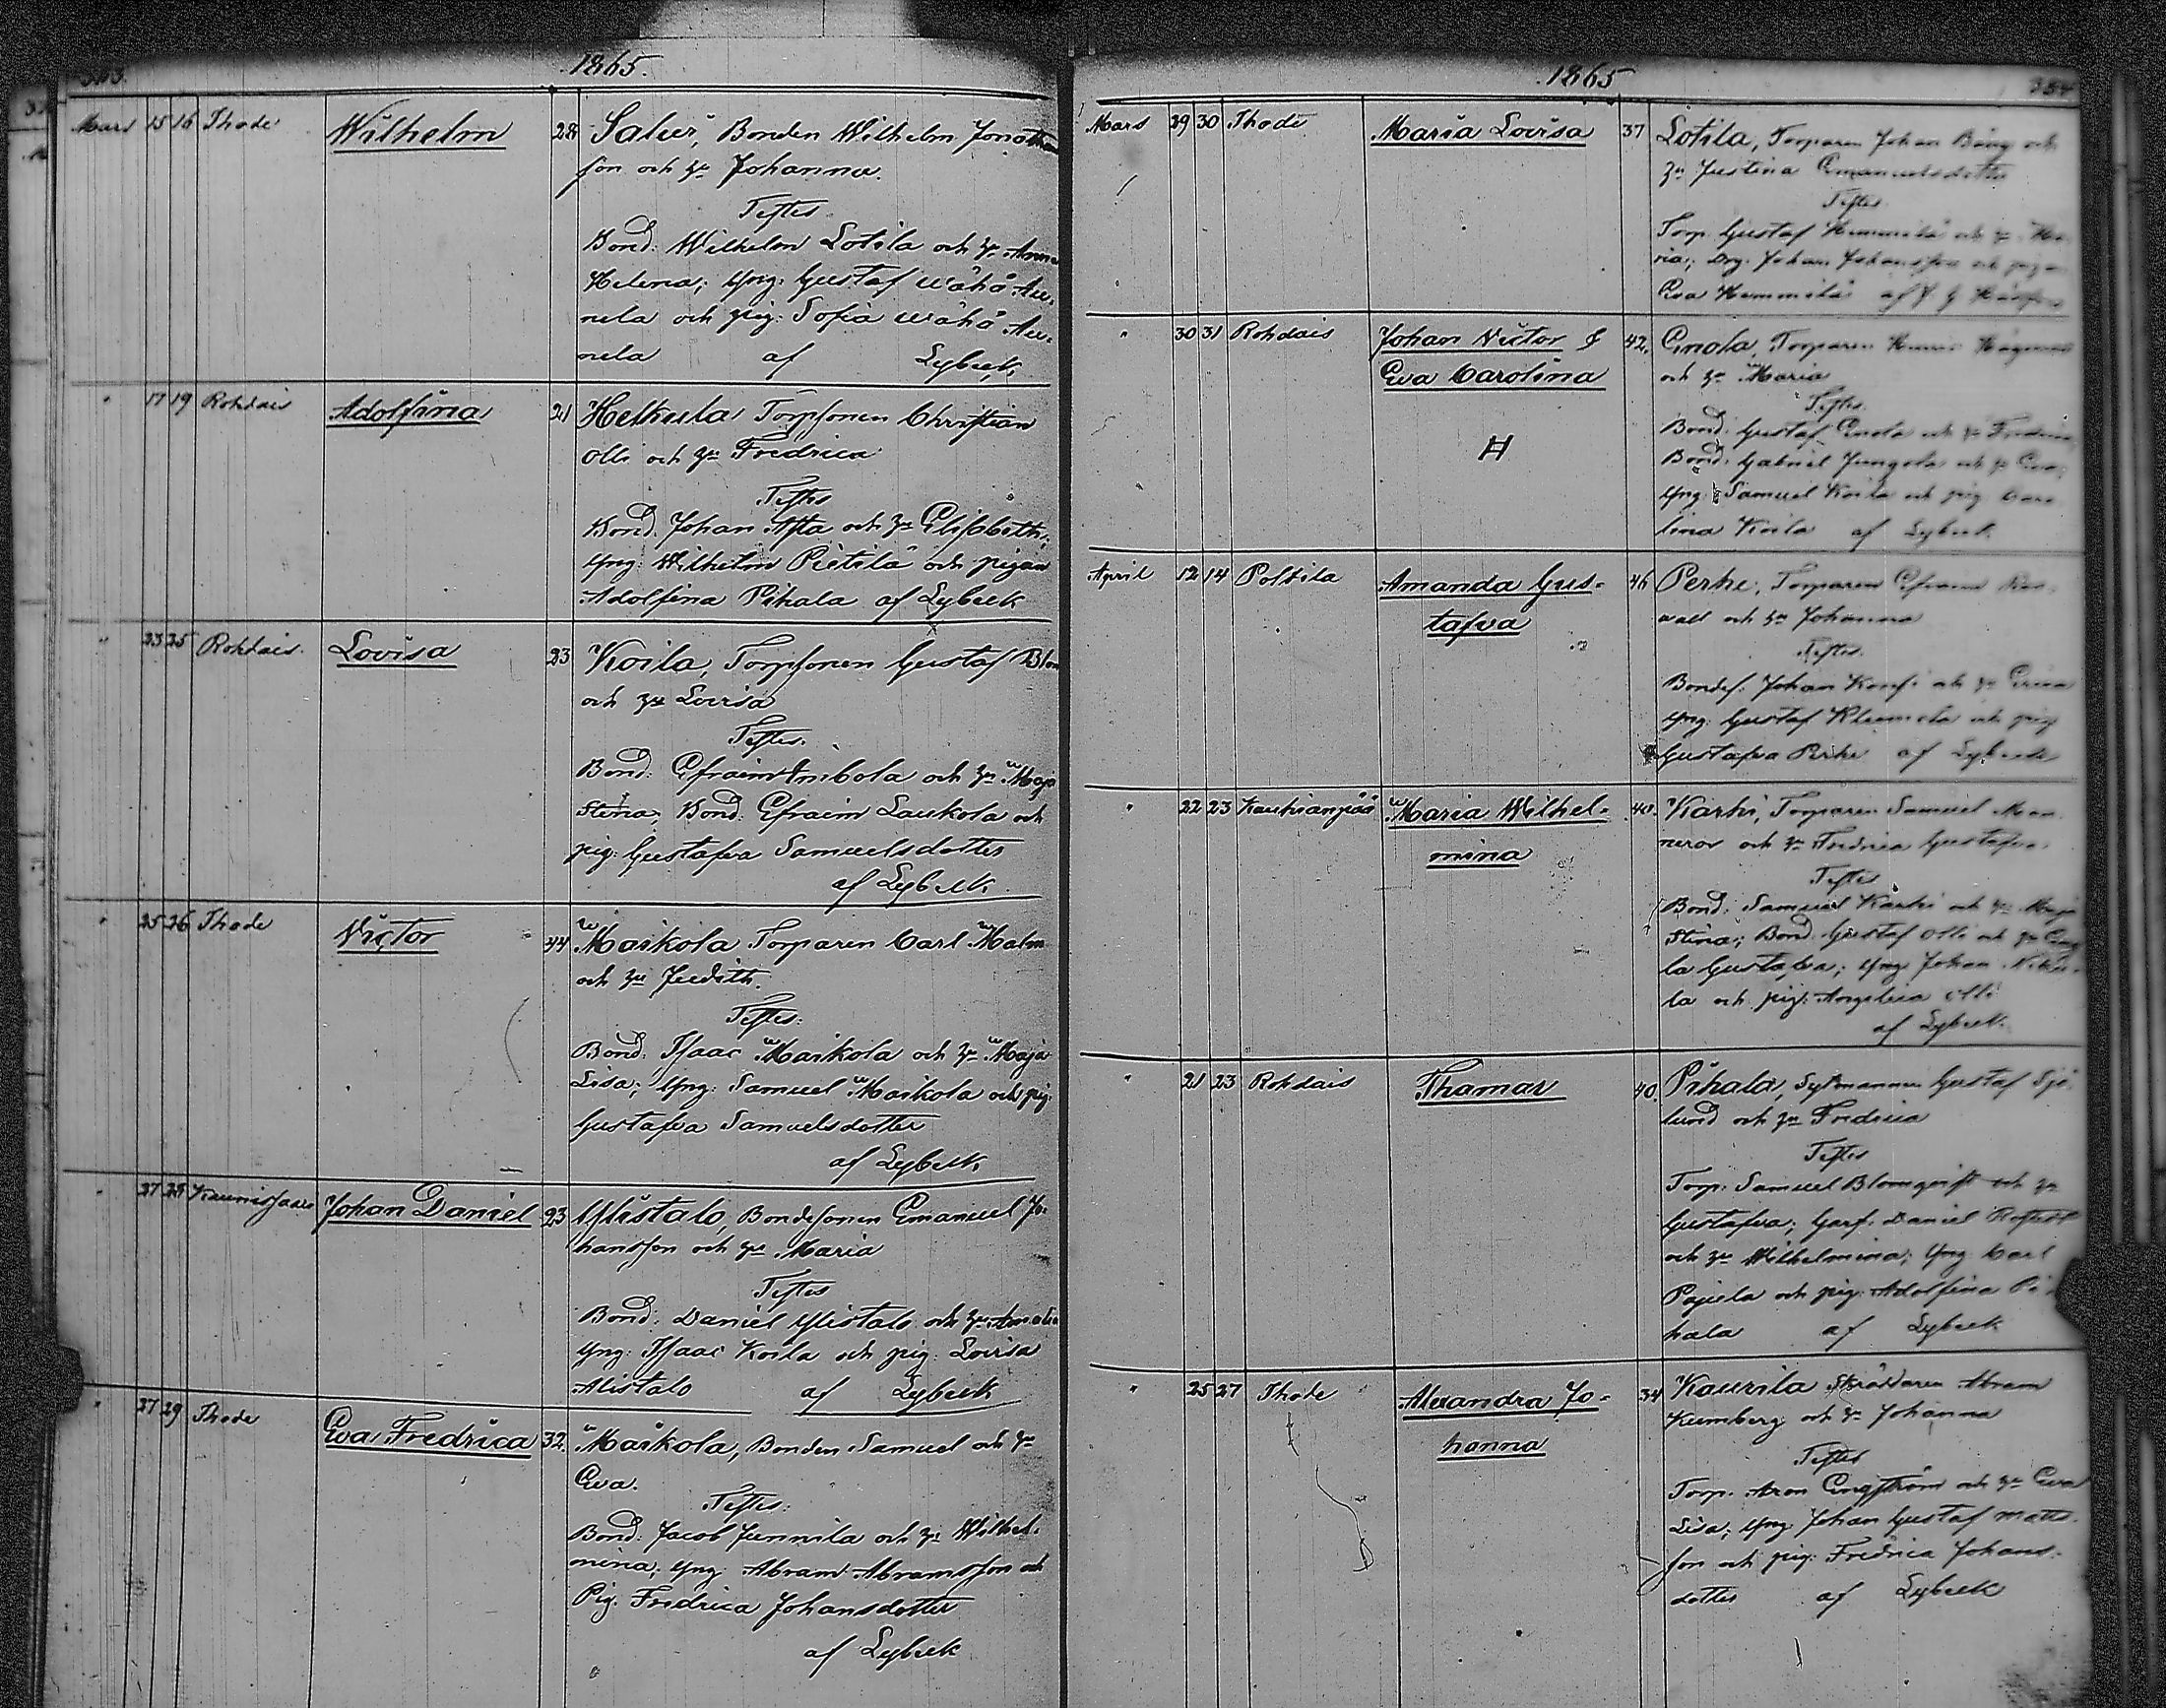 1865.
Mars 15 16 Thode Wilhelm 28 Saluri, Bonden Wilhelm Jonathan
son och hu Johanna.
Testes
Bond: Wilhelm Lotila och hu Anna
Helena; Yng: Gustaf Wähä Au-
nela och pig: Sofia Wähä Au-
nela af Lybeck
" 17 19 Rohdais Adolfina 21 Helkula Torpsonen Christian
Olli och hu Fredrica
Testes
Bond. Johan Asta och hu Elisabeth;
Yng: Wilhelm Pietilä och pigan
Adolfina Pihala af Lybeck
" 23 25 Rohdais. Lovisa 23 Koila, Torpsonen Gustaf Blom
och hu Lovisa
Testes.
Bond: Efraim Ambola och hu Maja
Stina; Bond. Efraim Laukola och
pig: Gustafva Samuelsdotter
af Lybeck
" 25 26 Thode Victor 44 Maikola Torparen Carl Malm
och hu Judith.
Testes:
Bond: Isaac Maikola och hu Maja
Lisa; Yng: Samuel Maikola och pig:
Gustafva Samuelsdotter
af Lybeck.
" 27 28 Kaunissaari Johan Daniel 23 Ylistalo, Bondesonen Emanuel Jo-
hansson och hu Maria
Testes
Bond: Daniel Ylistalo och hu Amalia
Yng: Isaac Koila och pig: Lovisa
Alistalo af Lybeck
" 27 29 Thode Eva Fredrica 32. Maikola, Bonden Samuel och hu
Eva.
Testes:
Bond: Jacob Junnila och hu Wilhel-
mina; Yng Abram Abramsson och
Pig. Fredrica Johansdotter
af Lybeck
1865
Mars 29 30 Thode Maria Lovisa 37 Lotila, Torparen Johan Bäng och
hu Justina Emanuelsdotter
Testes
Torp. Gustaf Hemmilä och hu Ma-
ria; Drg. Johan Johansson och pigan
Eva Hemmilä af
" 30 31 Rohdais Johan Victor & 42. Enola, Torparen
Eva Carolina och hu Maria
Testes.
Bond: Gustaf Enola och hu Fredrica
Bond: Gabriel Jungola och hu Eva;
Yng: Samuel Koila och pig Caro
lina Koila af Lybeck.
April 12 14 Poltila Amanda Gus- 46 Perhe, Torparen Efraim
tafva wall och hu Johanna
Testes.
Bondes: Johan och hu Erica
Yng: Gustaf Kleemola och pig
Gustafva Perhe af Lybeck
" 22 23 Kauhianpää Maria Wilhel- 40. Karhi, Torparen Samuel Man-
mina neros och hu Fredrica Gustafva.
Testes
Bond: Samuel Karhi och hu Maja
Stina; Bond. Gustaf Olli och hu
la Gustafva; Yng Johan
la och pig: Angelica Olli
af Lybeck.
" 21 23 Rohdais Thamar 40. Pihala, Sytmannen Gustaf Sjö-
lund och hu Fredrica
Testes
Torp: Samuel Blomqvist och hu
Gustafva; Garf: Daniel
och hu Wilhelmina; Yng Carl
Pajula och pig: Adolfina Pi-
hala af Lybeck
" 25 27 Thode Alexandra Jo- 34 Kaurila Skräddaren Abram
hanna Kumberg och hu Johanna
Testes
Torp. Aron Engström och hu Eva
Lisa; Yng: Johan Gustaf Matts-
son och pig: Fredrica Johans-
dotter af Lybeck